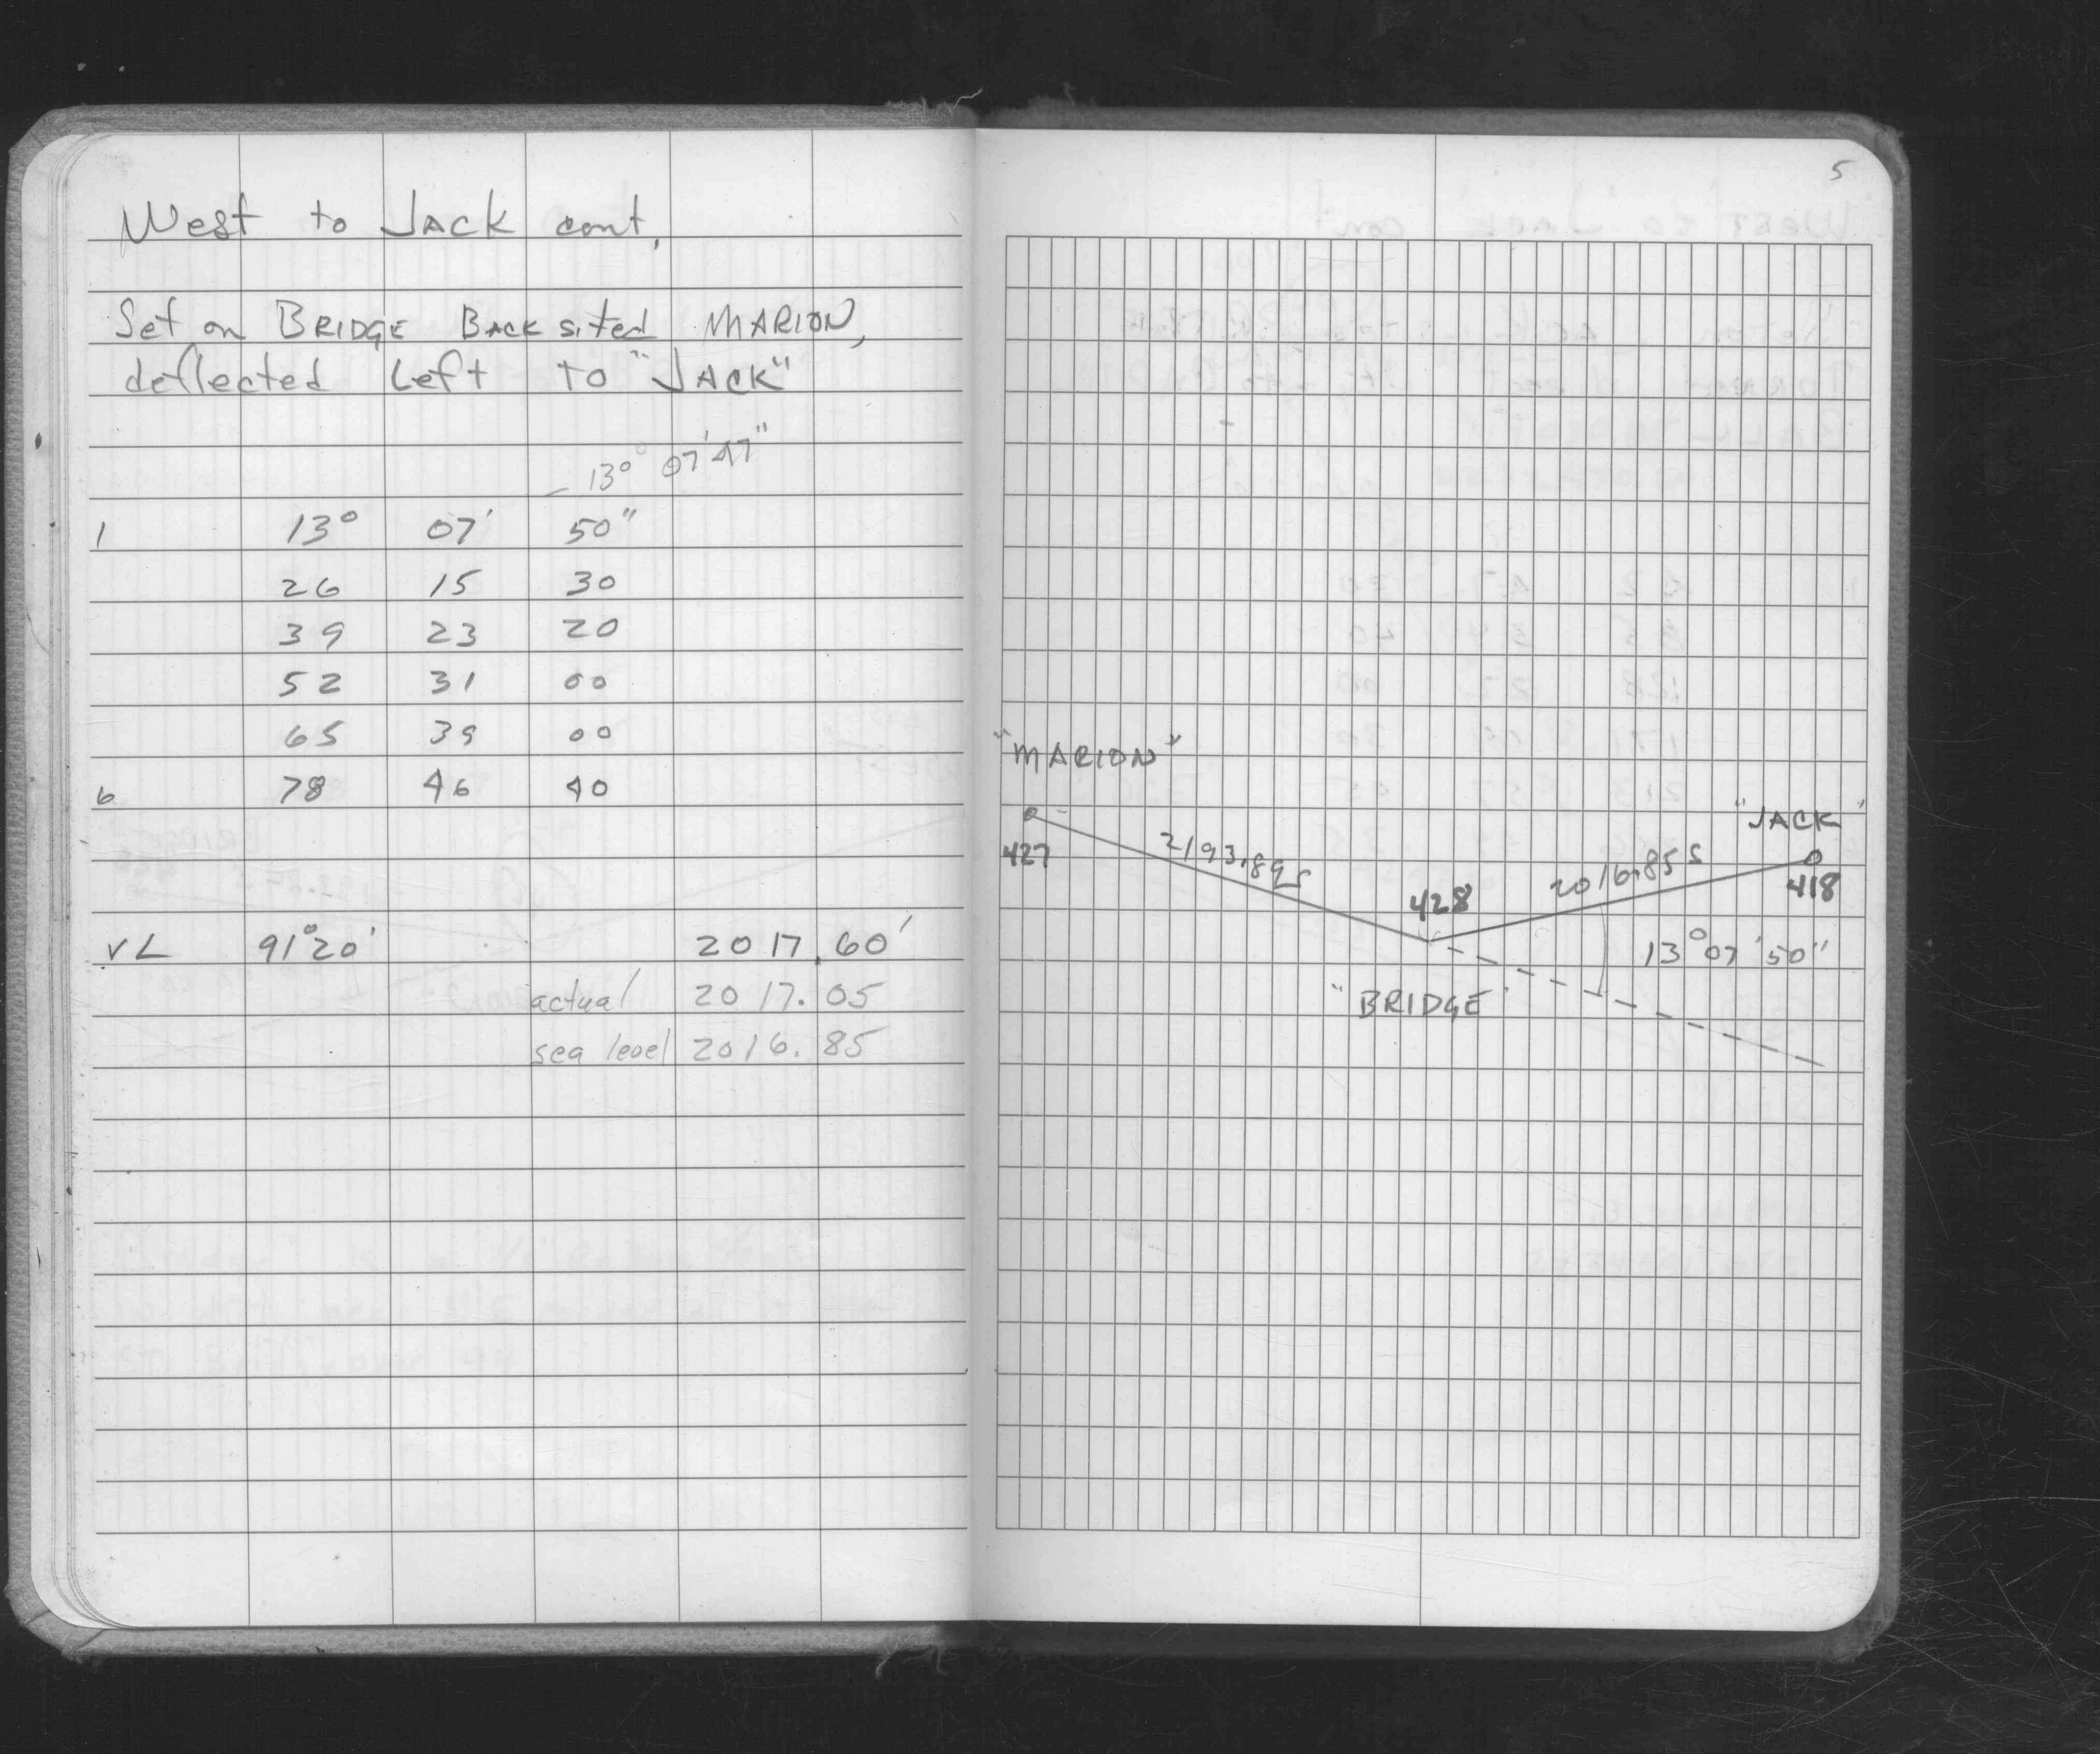 West to JACK cont.
Set on BRIDGE BACK sited MARION,
deflected Left TO "JACK"
13° 07' 47"
1 13° 07' 50"
26 15 30
39 23 20
52 31 00
65 39 00
6 78 46 40
VL 91°20' 2017.60'
actual 2017.05
sea level 2016.85
5
"MARION"
"JACK"
427
2193.89s
428
2016.85 s
418
13° 07' 50"
"BRIDGE"